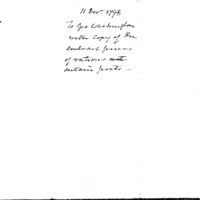 11 Decr. 1792
To Geo Washington
with Copy of the
Contract
of rations
certain posts -